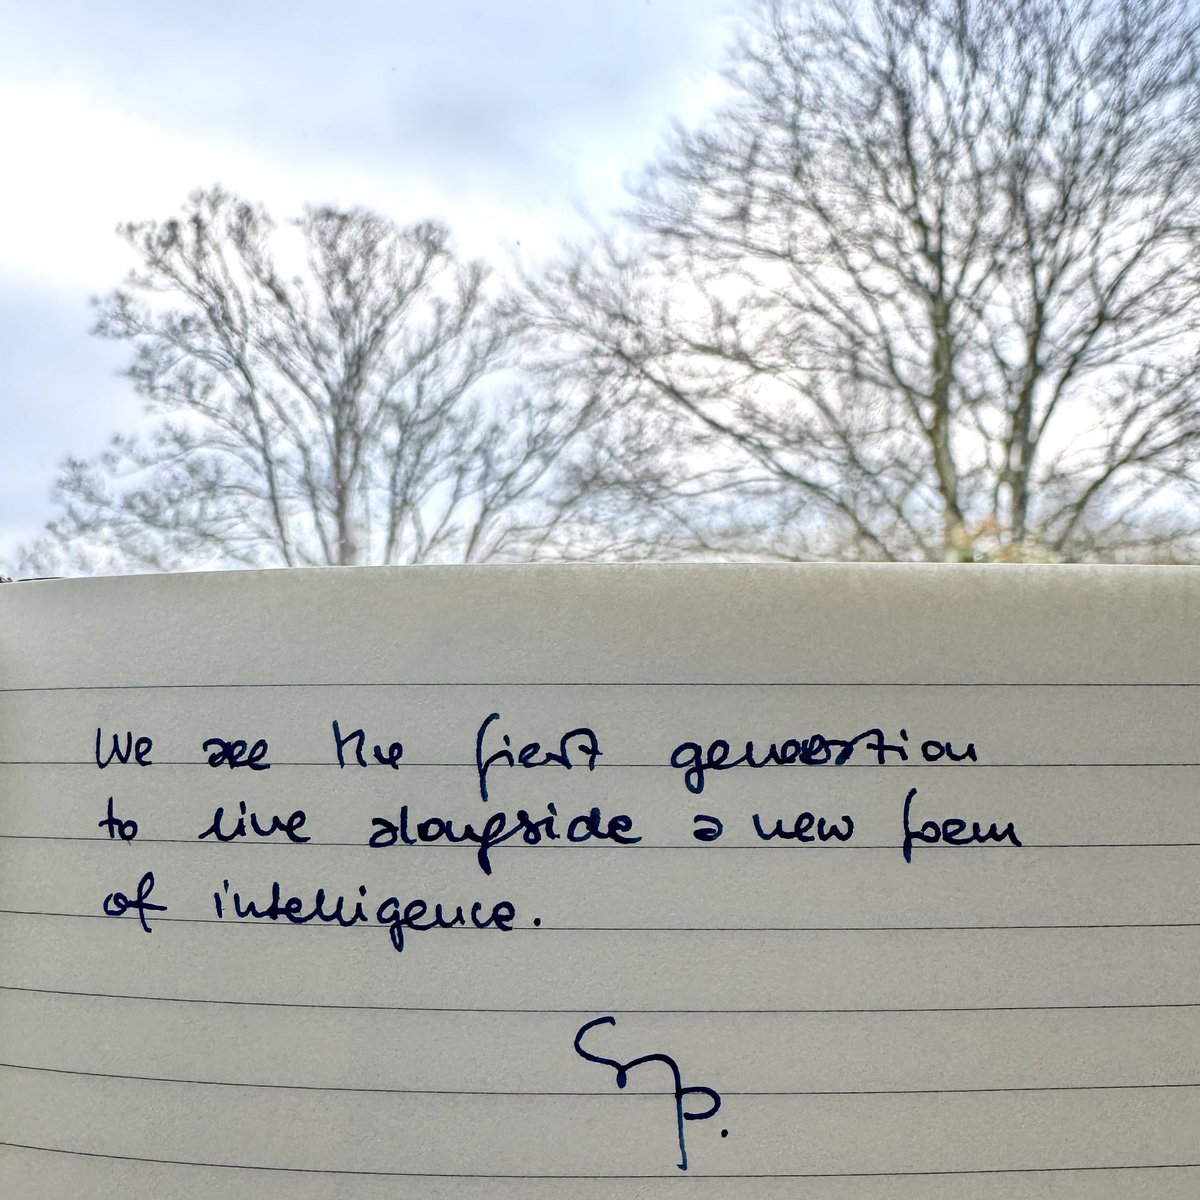 We are the first generation
to live alongside a new form
of intelligence.